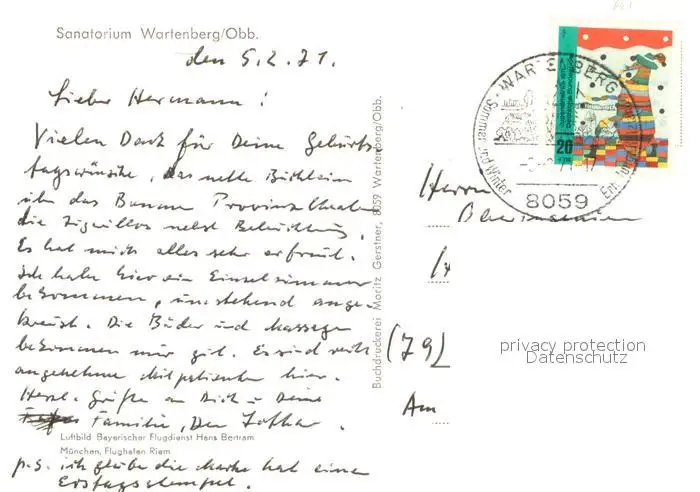 Sanatorium Wartenberg/Obb.
den 5.2.71.
Lieber Hermann!
Vielen Dank für Deine Geburts-
tagswünsche, das nette Büchlein
über das Provinztheater
die nebst
Es hat mich alles sehr erfreut.
Ich habe hier ein Einzelzimmer
bekommen, umstehend ange-
kreuzt. Die Bäder und Massagen
bekommen mir gut. Es sind recht
angenehme Mitpatienten hier.
Herzl. Grüße an Dich u. Deine
Familie, Dein
Luftbild Bayerischer Flugdienst Hans Bertram
München, Flughafen Riem
p.s. ich glaube die Marke hat einen
Erstagsstempel.
Buchdruckerei Moritz Gerstner, 8059 Wartenberg/Obb.
WARTENBERG
Sommer und Winter
8059
20
Deutsche Bundespost
Herrn
(79)
Am
privacy protection
Datenschutz